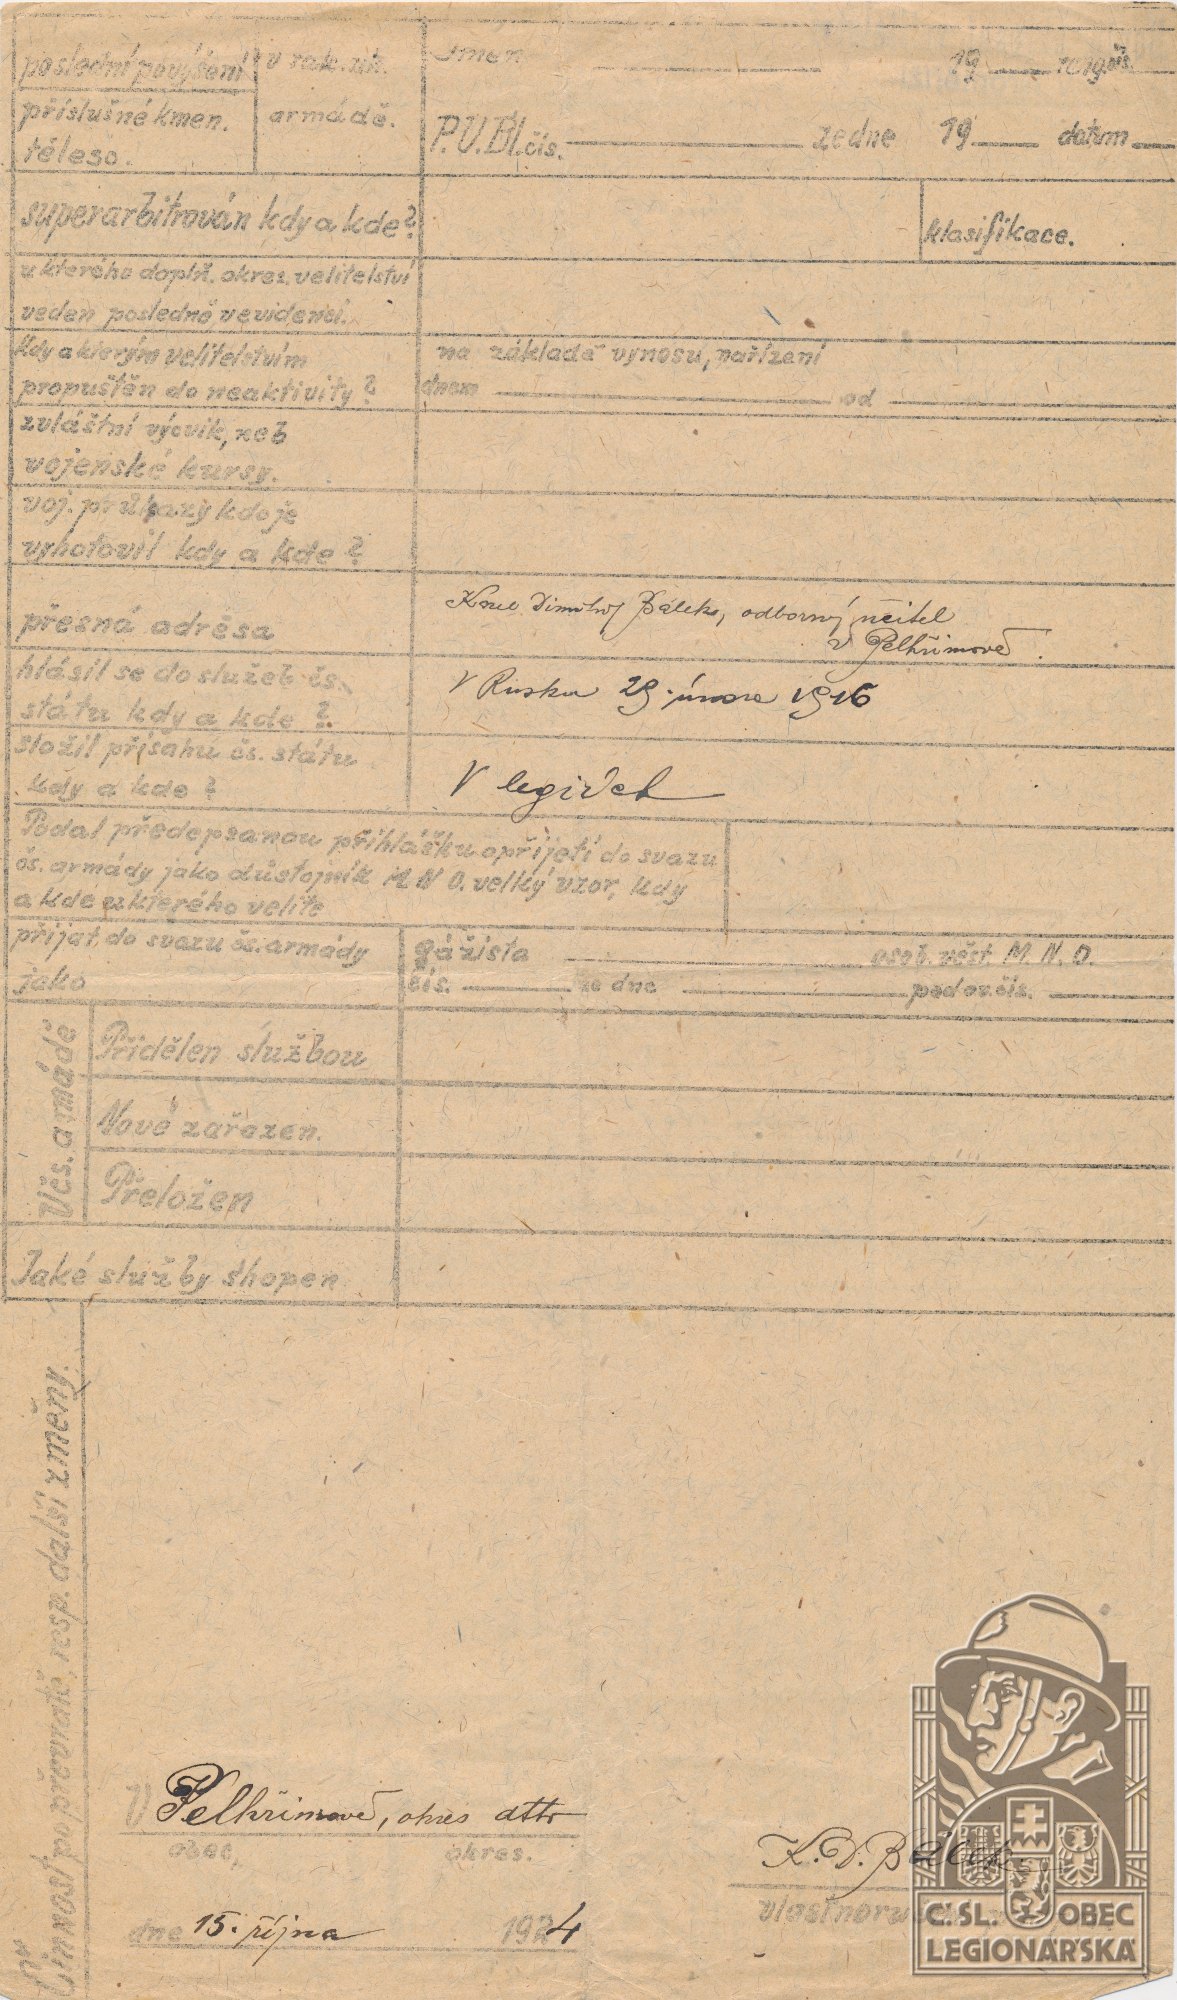 poslední povýšení v rak. uh. jmen 19 čís.
příslušné kmen. armádě. P.V.Bl. čís. ze dne 19 datum
těleso.
superarbitrován kdy a kde? klasifikace.
u kterého doplň. okres. velitelství
veden posledně v evidenci.
Kdy a kterým velitelstvím na základě vynosu, nařízení
propuštěn do neaktivity? dnem od
zvláštní výcvik, neb
vojenské kursy.
voj. průkazy kdo je
vyhotovil kdy a kde?
přesná adresa Karel Dimitrij Bálek, odborný učitel
v Pelhřimově.
hlásil se do služeb čs. V Rusku 29. února 1916
státu kdy a kde?
složil přísahu čs. státu
kdy a kde? V legiích
Podal předepsanou přihlášku o přijetí do svazu
čs. armády jako důstojník M N O. velký vzor, kdy
a kde u kterého velite
přijat do svazu čs. armády gážista osob. věst. M. N. O.
jako čís. ze dne podor. čís.
V čs. armádě
Přidělen službou
Nově zařazen.
Přeložen
Jaké služby shopen
Činnost po převratě, resp. další změny.
V Pelhřimově, okres dtto
obec, okres.
K. D. Bálek
dne 15. října 1924
Č. SL. OBEC
LEGIONÁŘSKÁ